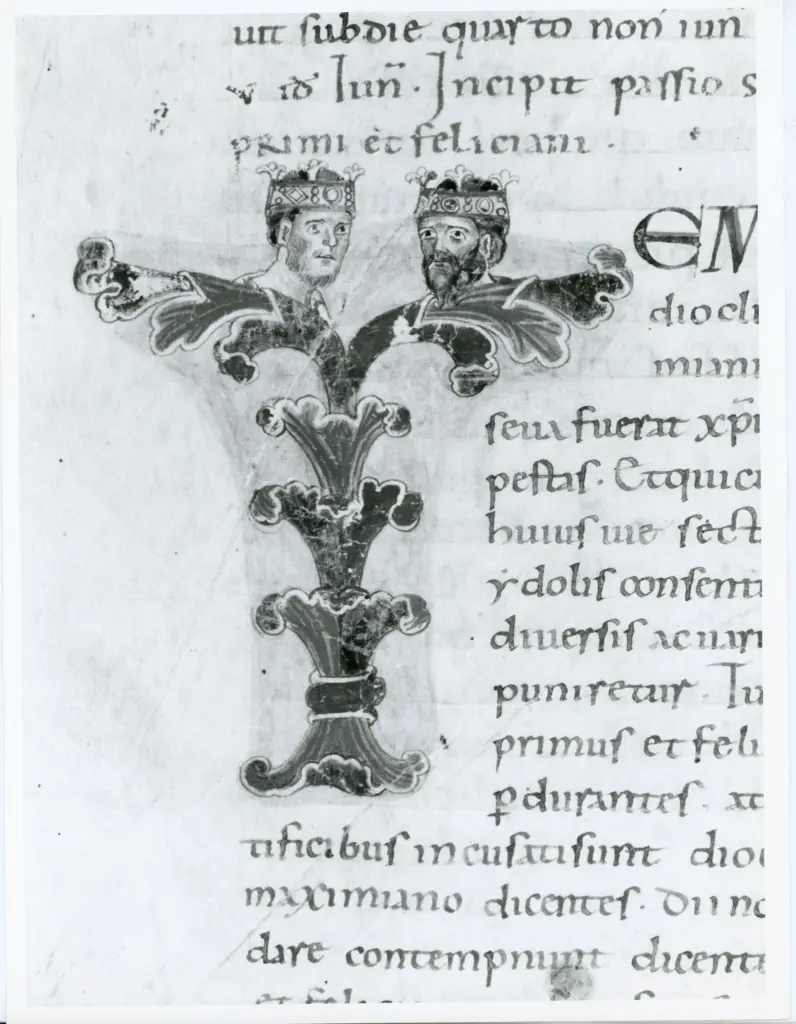 uit subdie quarto non iun
v id Iun̄. Incipit passio s
primi et feliciani.
EN
diocli
miani
seua fuerat xp̄i
pestas. Et quic
huius uie sect
ydolis consenti
diuersis ac uari
puniretur. Iu
primus et feli
ꝑdurantes. at
tificibus incusati sunt dioc
maximiano dicentes. Dii no
dare contempnunt dicente
et felic